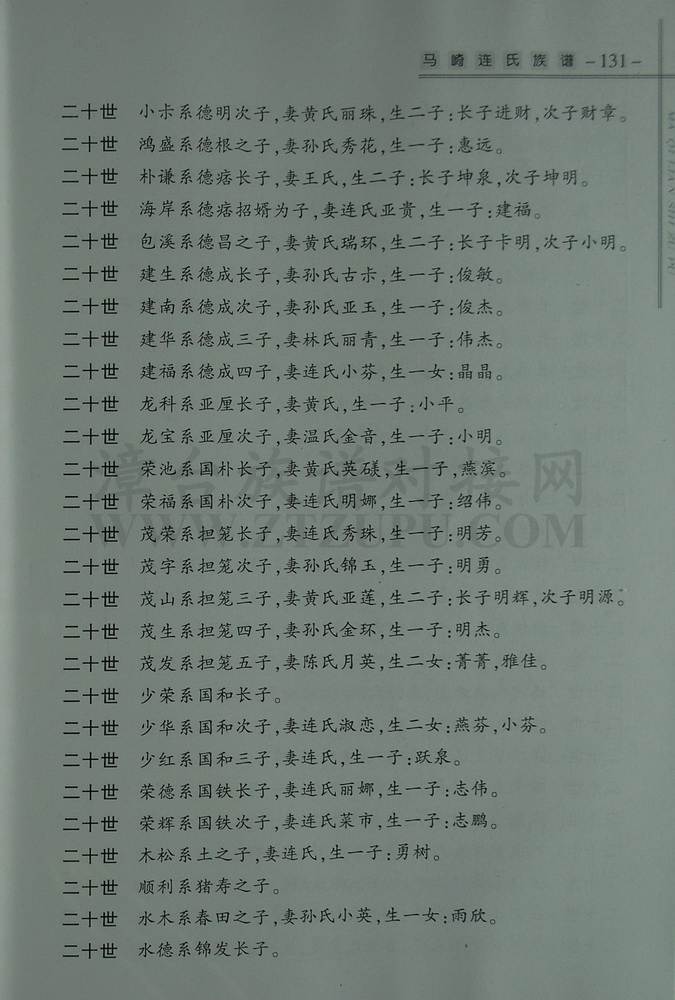 马崎连氏族谱 -131-
二十世 小卡系德明次子,妻黄氏丽珠,生二子:长子进财,次子财章。
二十世 鸿盛系德根之子,妻孙氏秀花,生一子:惠远。
二十世 朴谦系德痞长子,妻王氏,生二子:长子坤泉,次子坤明。
二十世 海岸系德痞招婿为子,妻连氏亚贵,生一子:建福。
二十世 包溪系德昌之子,妻黄氏瑞环,生二子:长子卡明,次子小明。
二十世 建生系德成长子,妻孙氏古卡,生一子:俊敏。
二十世 建南系德成次子,妻孙氏亚玉,生一子:俊杰。
二十世 建华系德成三子,妻林氏丽青,生一子:伟杰。
二十世 建福系德成四子,妻连氏小芬,生一女:晶晶。
二十世 龙科系亚厘长子,妻黄氏,生一子:小平。
二十世 龙宝系亚厘次子,妻温氏金音,生一子:小明。
二十世 荣池系国朴长子,妻黄氏英,生一子,燕滨。
二十世 荣福系国朴次子,妻连氏明娜,生一子:绍伟。
二十世 茂荣系担笼长子,妻连氏秀珠,生一子:明芳。
二十世 茂宇系担笼次子,妻孙氏锦玉,生一子:明勇。
二十世 茂山系担笼三子,妻黄氏亚莲,生二子:长子明辉,次子明源。
二十世 茂生系担笼四子,妻孙氏金环,生一子:明杰。
二十世 茂发系担笼五子,妻陈氏月英,生二女:菁菁,雅佳。
二十世 少荣系国和长子。
二十世 少华系国和次子,妻连氏淑恋,生二女:燕芬,小芬。
二十世 少红系国和三子,妻连氏,生一子:跃泉。
二十世 荣德系国铁长子,妻连氏丽娜,生一子:志伟。
二十世 荣辉系国铁次子,妻连氏菜市,生一子:志鹏。
二十世 木松系土之子,妻连氏,生一子:勇树。
二十世 顺利系猪寿之子。
二十世 水木系春田之子,妻孙氏小英,生一女:雨欣。
二十世 水德系锦发长子。
漳台族谱对接网
WWW.ZTZUPU.COM